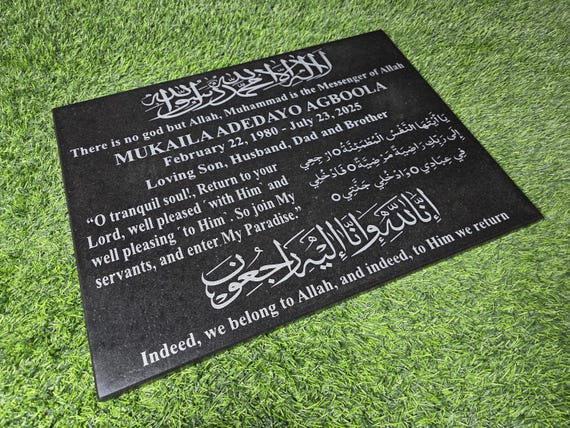 لا إله إلا الله محمد رسول الله
There is no god but Allah, Muhammad is the Messenger of Allah
MUKAILA ADEDAYO AGBOOLA
February 22, 1980 - July 23, 2025
Loving Son, Husband, Dad and Brother
“O tranquil soul!, Return to your
Lord, well pleased ´with Him` and
well pleasing ´to Him`. So join My
servants, and enter My Paradise.”
يَا أَيَّتُهَا النَّفْسُ الْمُطْمَئِنَّةُ ۝ ارْجِعِي
إِلَى رَبِّكِ رَاضِيَةً مَرْضِيَّةً ۝ فَادْخُلِي
فِي عِبَادِي ۝ وَادْخُلِي جَنَّتِي ۝
إنا لله وإنا إليه راجعون
Indeed, we belong to Allah, and indeed, to Him we return